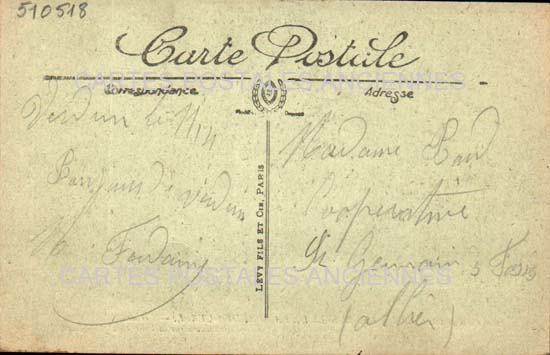 510518
Carte Postale
CARTES POSTALES ANCIENNES
Correspondance
Adresse
Verdun le
Bonjour de Verdun
M Fontaine
LÉVY FILS ET CIE, PARIS
Madame
Coopérative
St Germain
(allier)
CARTES POSTALES ANCIENNES